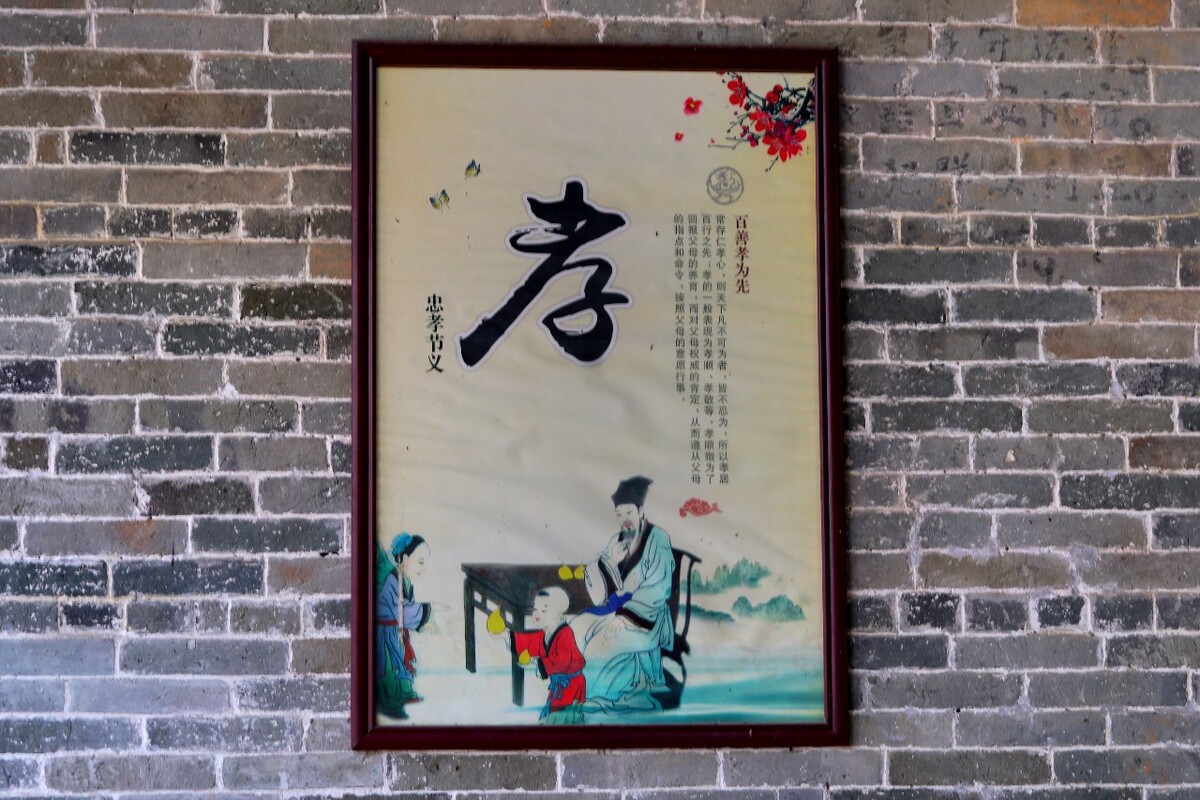 百善孝为先
常存仁孝心，则天下凡不可为者，皆不忍为，所以孝居
百行之先；孝的一般表现为孝顺、孝敬等，孝顺指为了
回报父母的养育，而对父母权威的肯定，从而遵从父母
的指点和命令，按照父母的意愿行事。
孝
忠孝节义